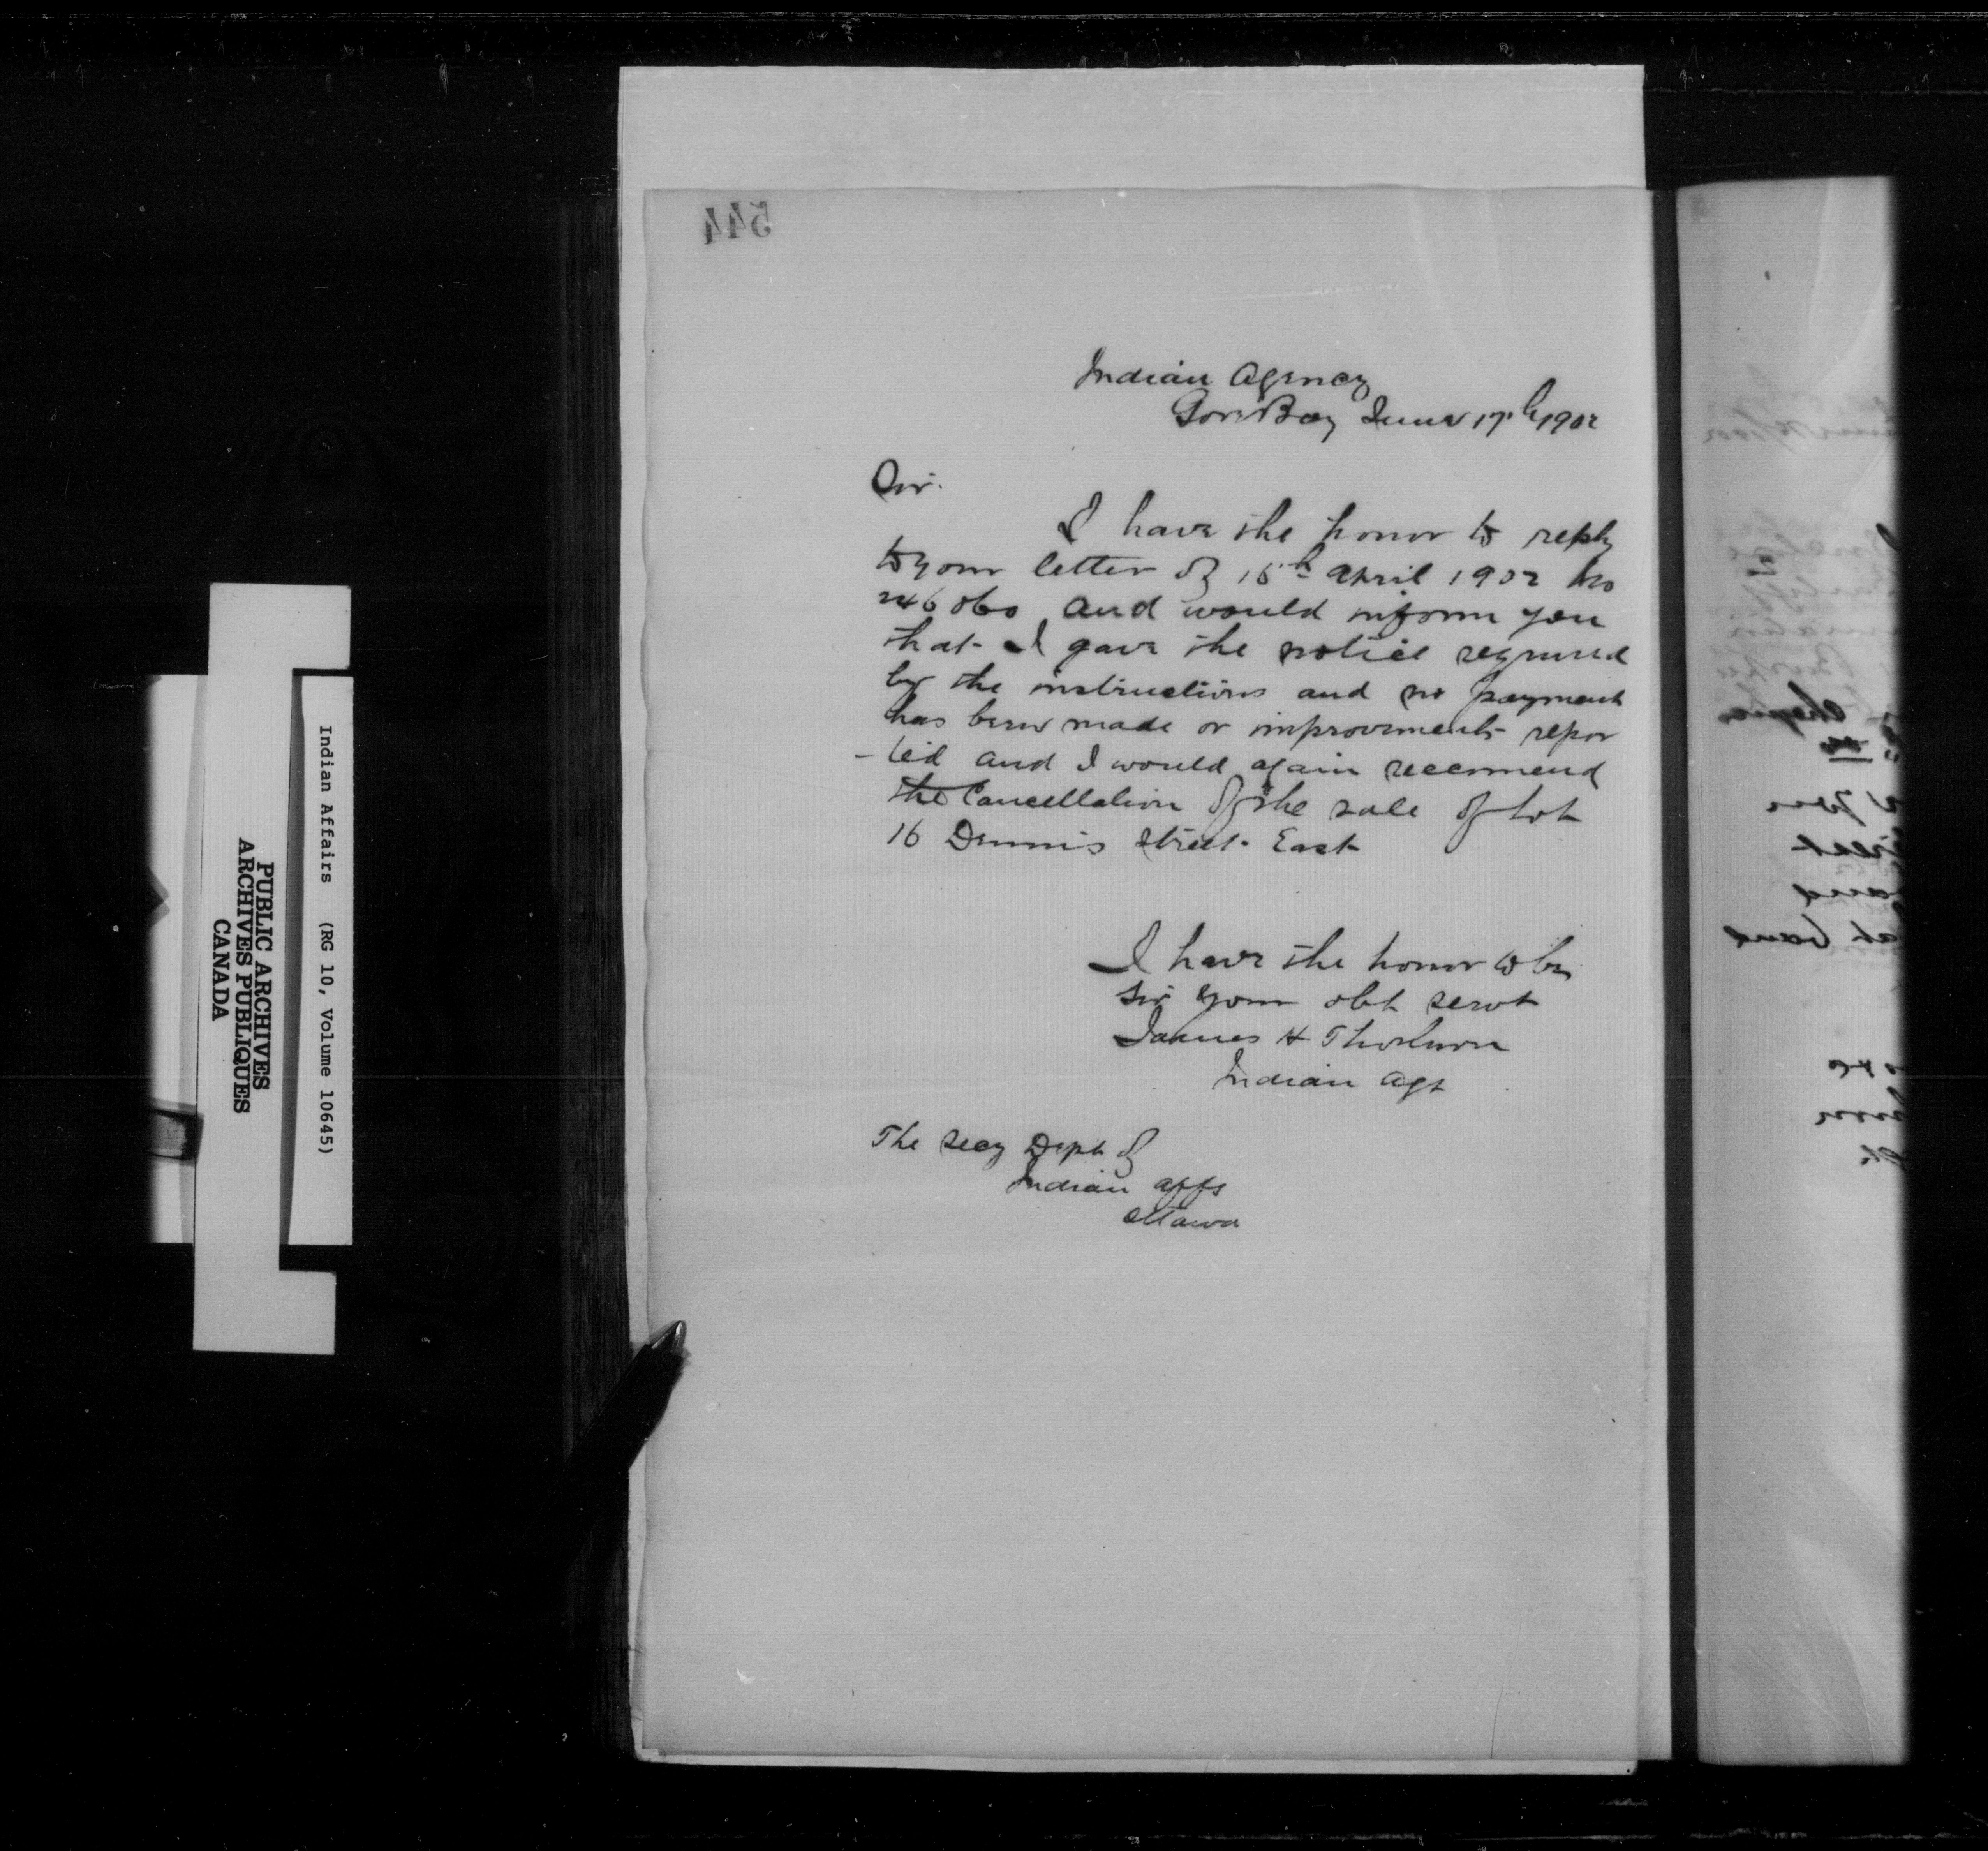 544
Indian Agency
Gore Bay June 17th 1902
Sir.
I have the honor to reply
to your letter of 15th April 1902 No
246060 and would inform you
that I gave the notice required
by the instructions and no payment
has been made or improvements repor
-ted and I would again recommend
the Cancellation of the sale of Lot
16 Dennis Street East
I have the honor to be
Sir your obt servt
James H Thorburn
Indian Agt
The Secy Dept of
Indian Affs
Ottawa
Indian Affairs (RG 10, Volume 10645)
PUBLIC ARCHIVES
ARCHIVES PUBLIQUES
CANADA